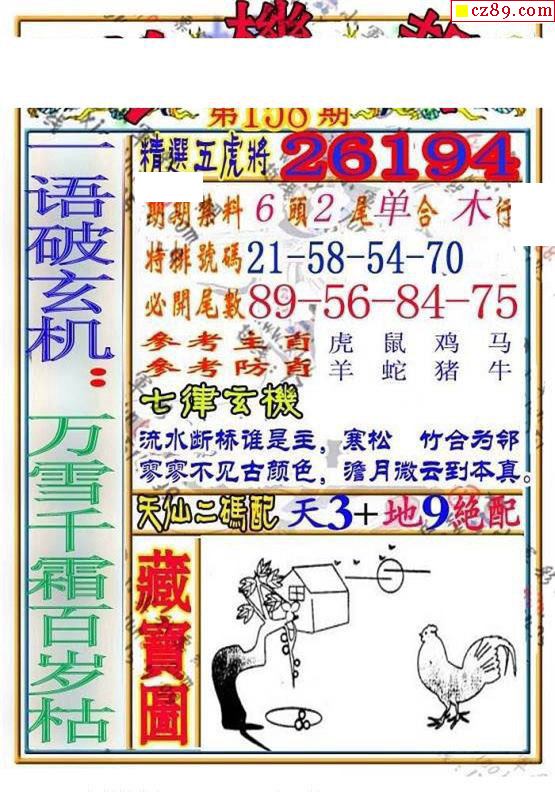 cz89.com
第158期
精選五虎將 26194
期期禁料 6 頭 2 尾 单 合 木 行
特排號碼 21-58-54-70
必開尾數 89-56-84-75
參考主肖 虎 鼠 鸡 马
參考防肖 羊 蛇 猪 牛
七律玄機
流水断桥谁是主，寒松 竹合为邻
寥寥不见古颜色，澹月微云到本真。
天仙二碼配 天3+地9絕配
藏寶圖
一语破玄机：万雪千霜百岁枯